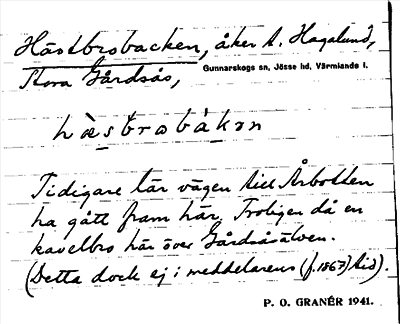 Hästbrobacken, åker t. Hagalund,
Stora Gårdsås,
Gunnarskogs sn, Jösse hd, Värmlands l.
hästbrobàkən
Tidigare lär vägen till Årbotten
ha gått fram här. Troligen då en
kavelbro här över Gårdsåsälven.
(Detta dock ej i meddelarens (f. 1867) tid).
P. O. GRANÉR 1941.